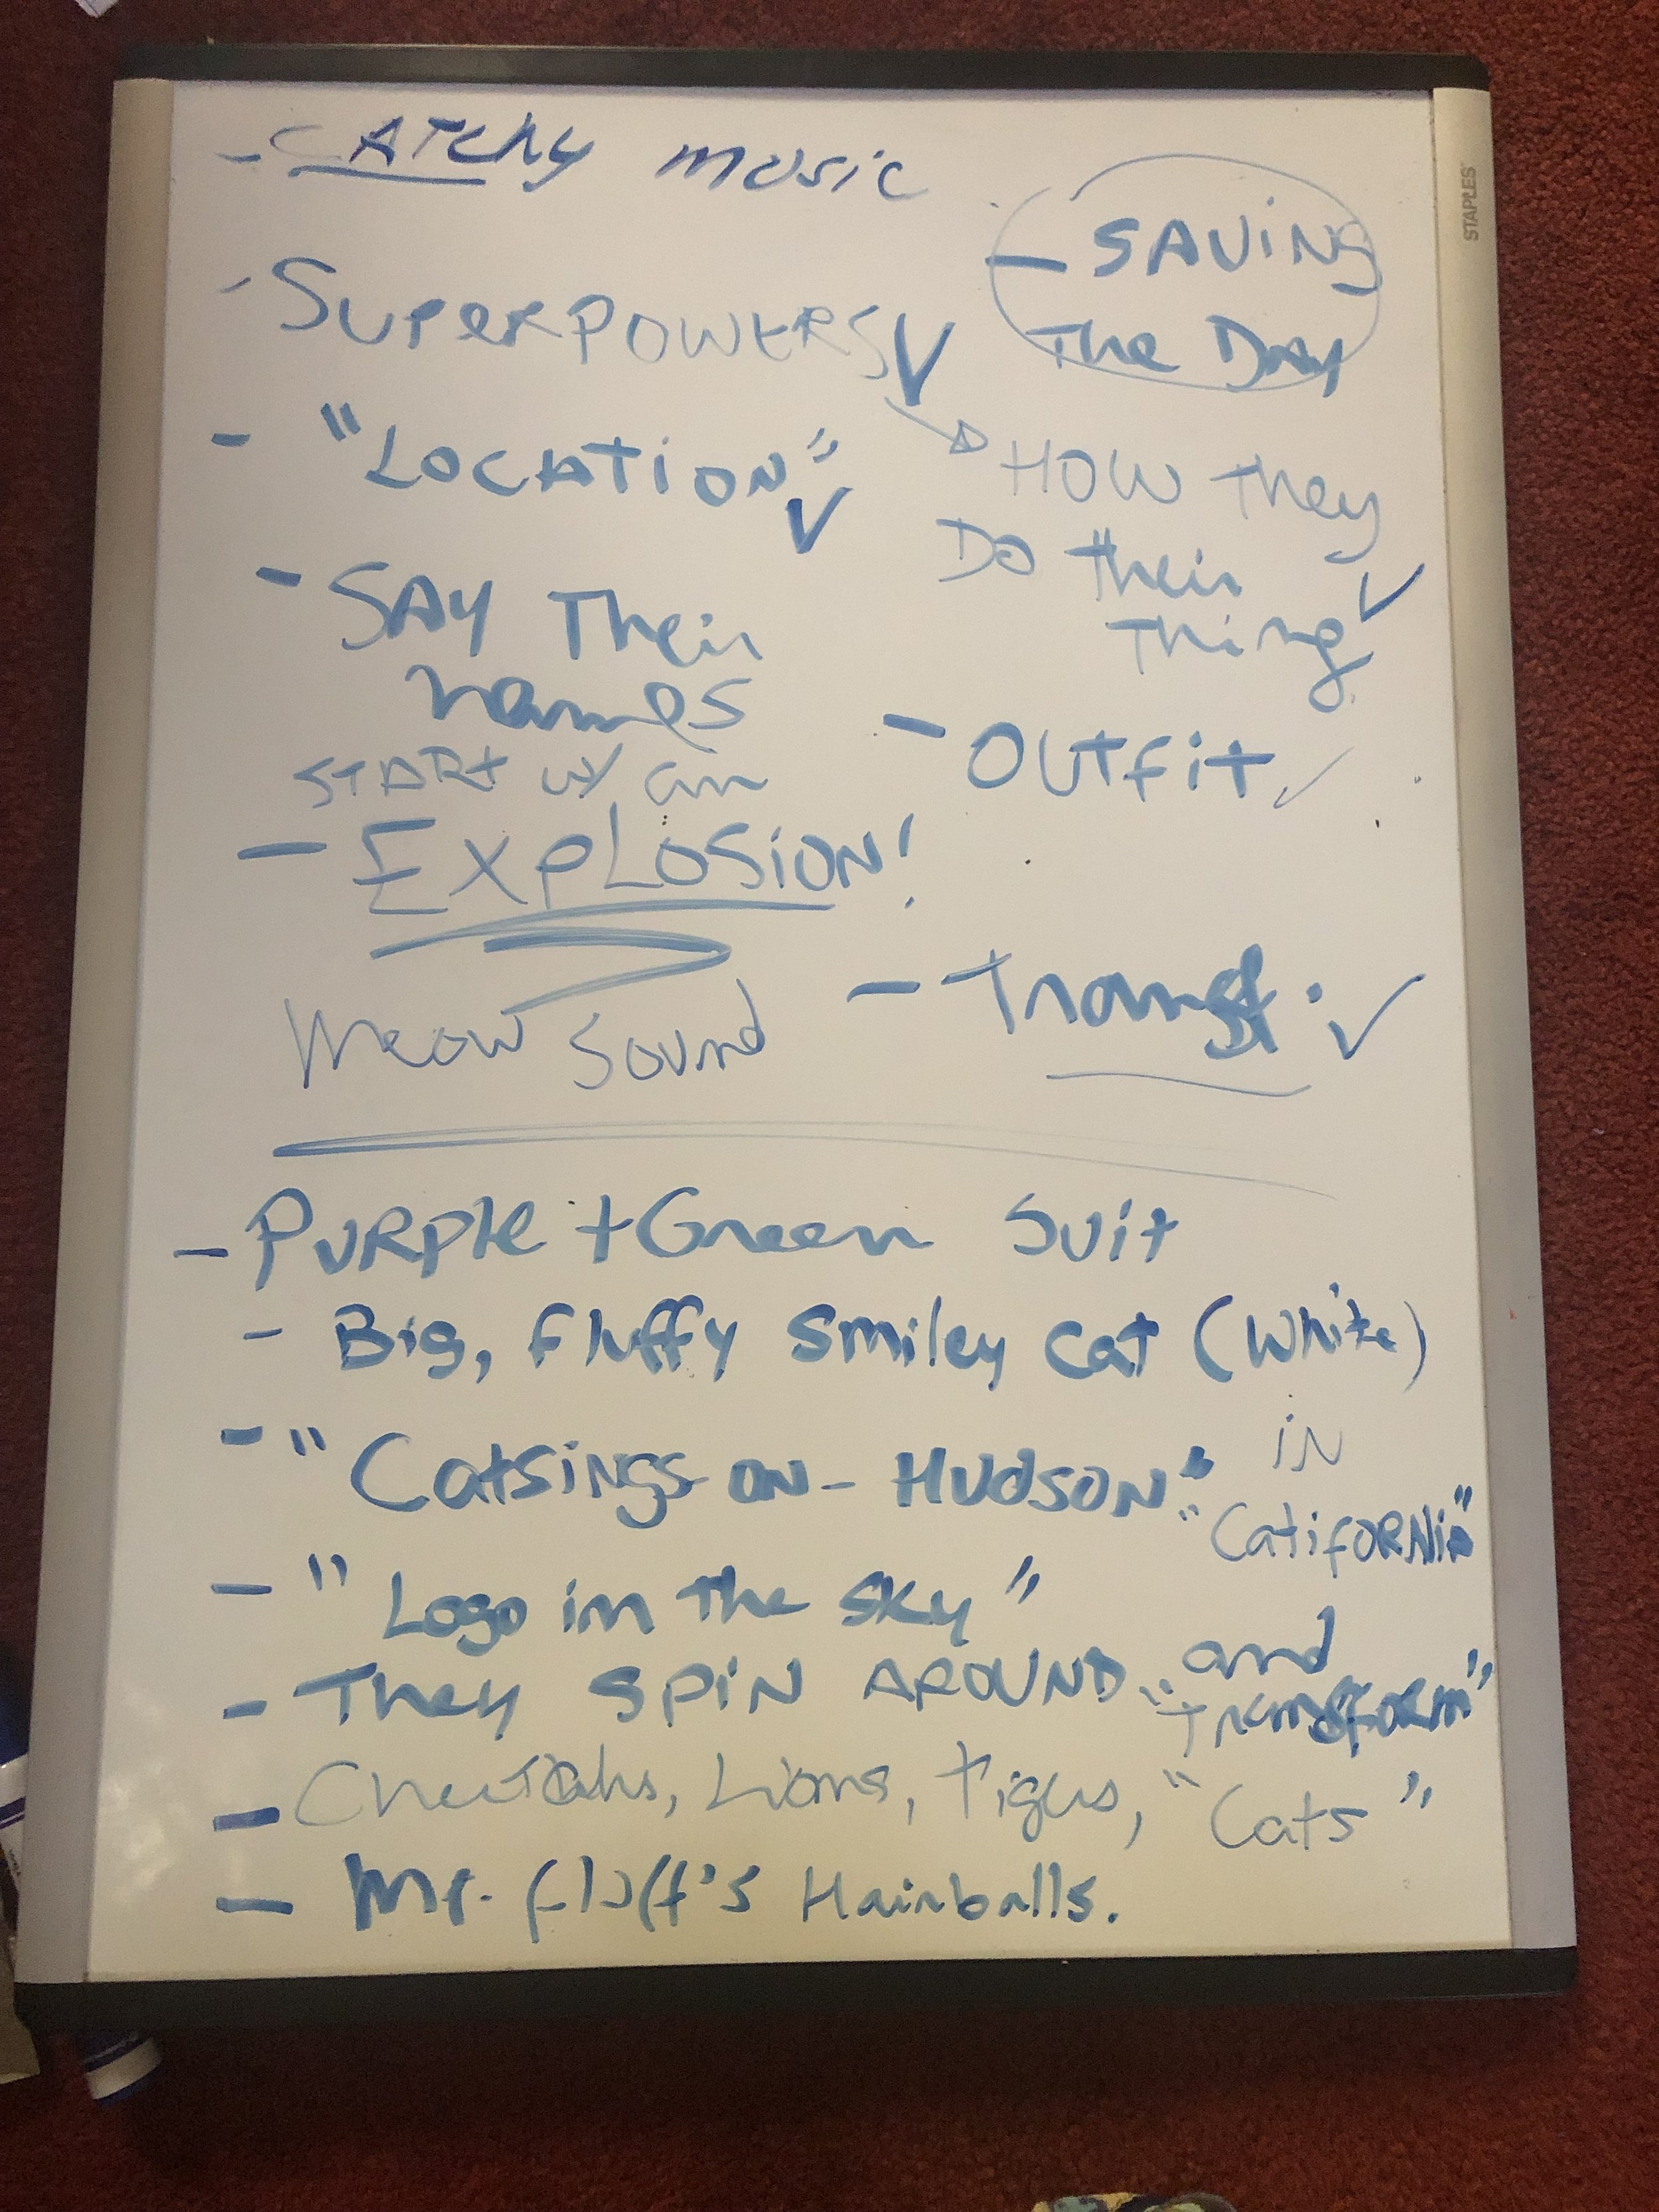 - CATchy music
- SAVING
The Day
- SuperPOWERS ✓
→ HOW they
Do their
Thing ✓
- "LOCATION" ✓
- SAY Their
names
- OUTfit ✓
START w/ an
- EXPLOSION!
Meow Sound
- Transf. ✓
- PURPle + Green Suit
- Big, fluffy smiley cat (white)
- "Catsings on - HUDSON" in
"CatifORNia"
- "Logo in the sky"
- They SPIN AROUND and
"TransfORM"
- Cheetahs, Lions, Tigers, "Cats"
- Mr. fluff's Hairballs.
STAPLES